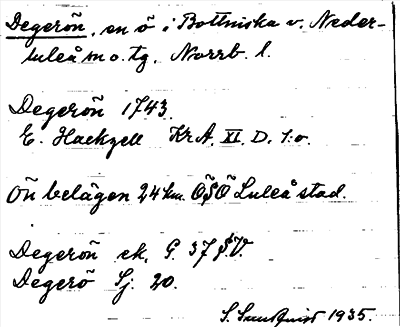 Degerön, en ö i Bottniska v. Neder-
luleå sn o. tg. Norrb. l.
Degerön 1743.
E. Hackzell KrA. XI. D. 1:o.
Ön belägen 24 km. ÖSÖ Luleå stad.
Degerön ek. G. 37 S.V.
Degerö Sj. 20.
S. Sundqvist 1935.